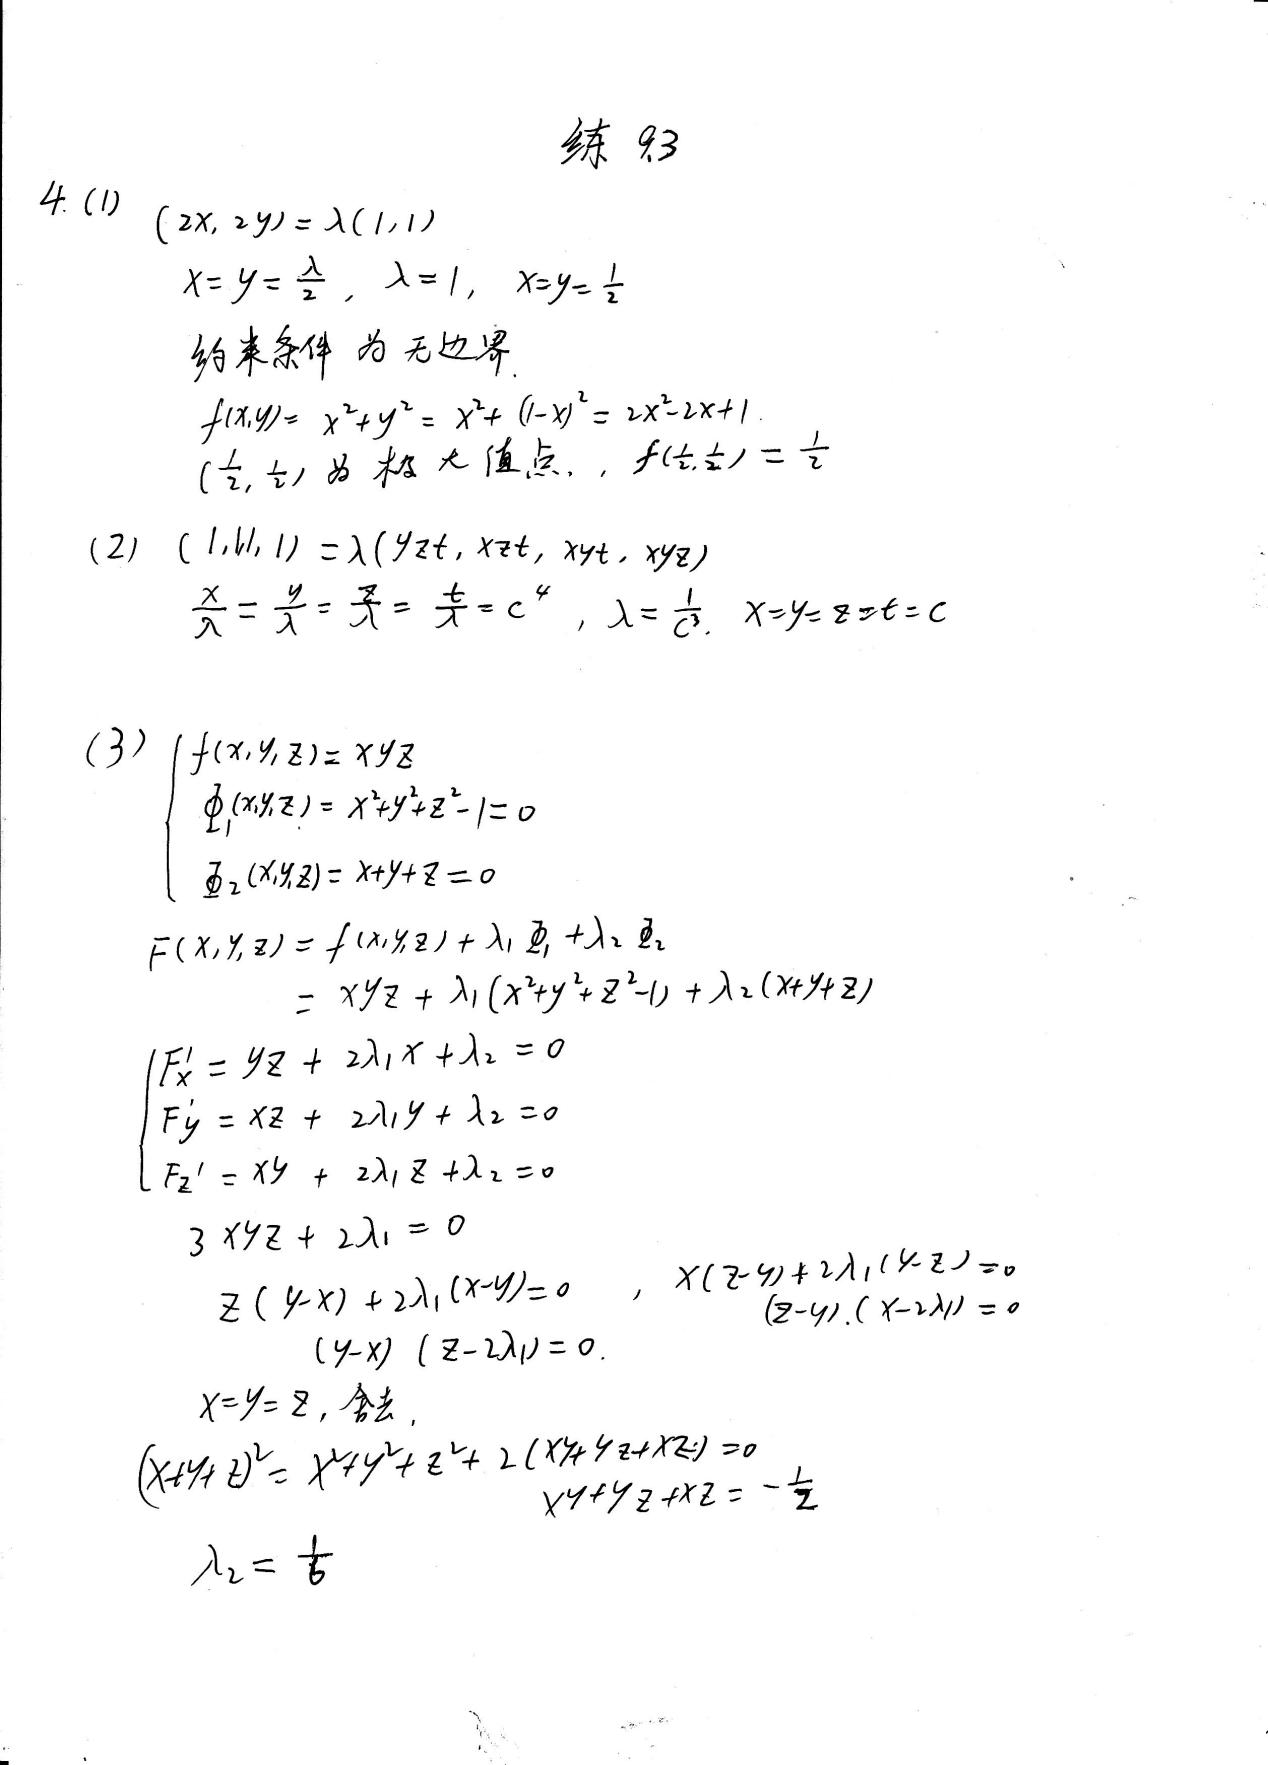 练 9.3
4. (1)
(2x, 2y) = λ(1, 1)
x = y = λ/2 , λ = 1, x=y=1/2
约束条件 为 无边界.
f(x,y) = x²+y² = x²+(1-x)² = 2x²-2x+1.
(1/2, 1/2) 为 极大值点. , f(1/2, 1/2) = 1/2
(2) (1,1,1,1) = λ(yzt, xzt, xyt, xyz)
x/λ = y/λ = z/λ = t/λ = c⁴ , λ = 1/c³. x=y=z=t=c
(3) f(x,y,z) = xyz
Φ₁(x,y,z) = x²+y²+z²-1=0
Φ₂(x,y,z) = x+y+z=0
F(x,y,z) = f(x,y,z) + λ₁Φ₁ + λ₂Φ₂
= xyz + λ₁(x²+y²+z²-1) + λ₂(x+y+z)
F'x = yz + 2λ₁x + λ₂ = 0
F'y = xz + 2λ₁y + λ₂ = 0
Fz' = xy + 2λ₁z + λ₂ = 0
3xyz + 2λ₁ = 0
z(y-x) + 2λ₁(x-y)=0 , x(z-y) + 2λ₁(y-z) = 0
(z-y).(x-2λ₁) = 0
(y-x)(z-2λ₁) = 0.
x=y=z, 舍去.
(x+y+z)² = x²+y²+z²+2(xy+yz+xz) = 0
xy+yz+xz = -1/2
λ₂ = 1/6